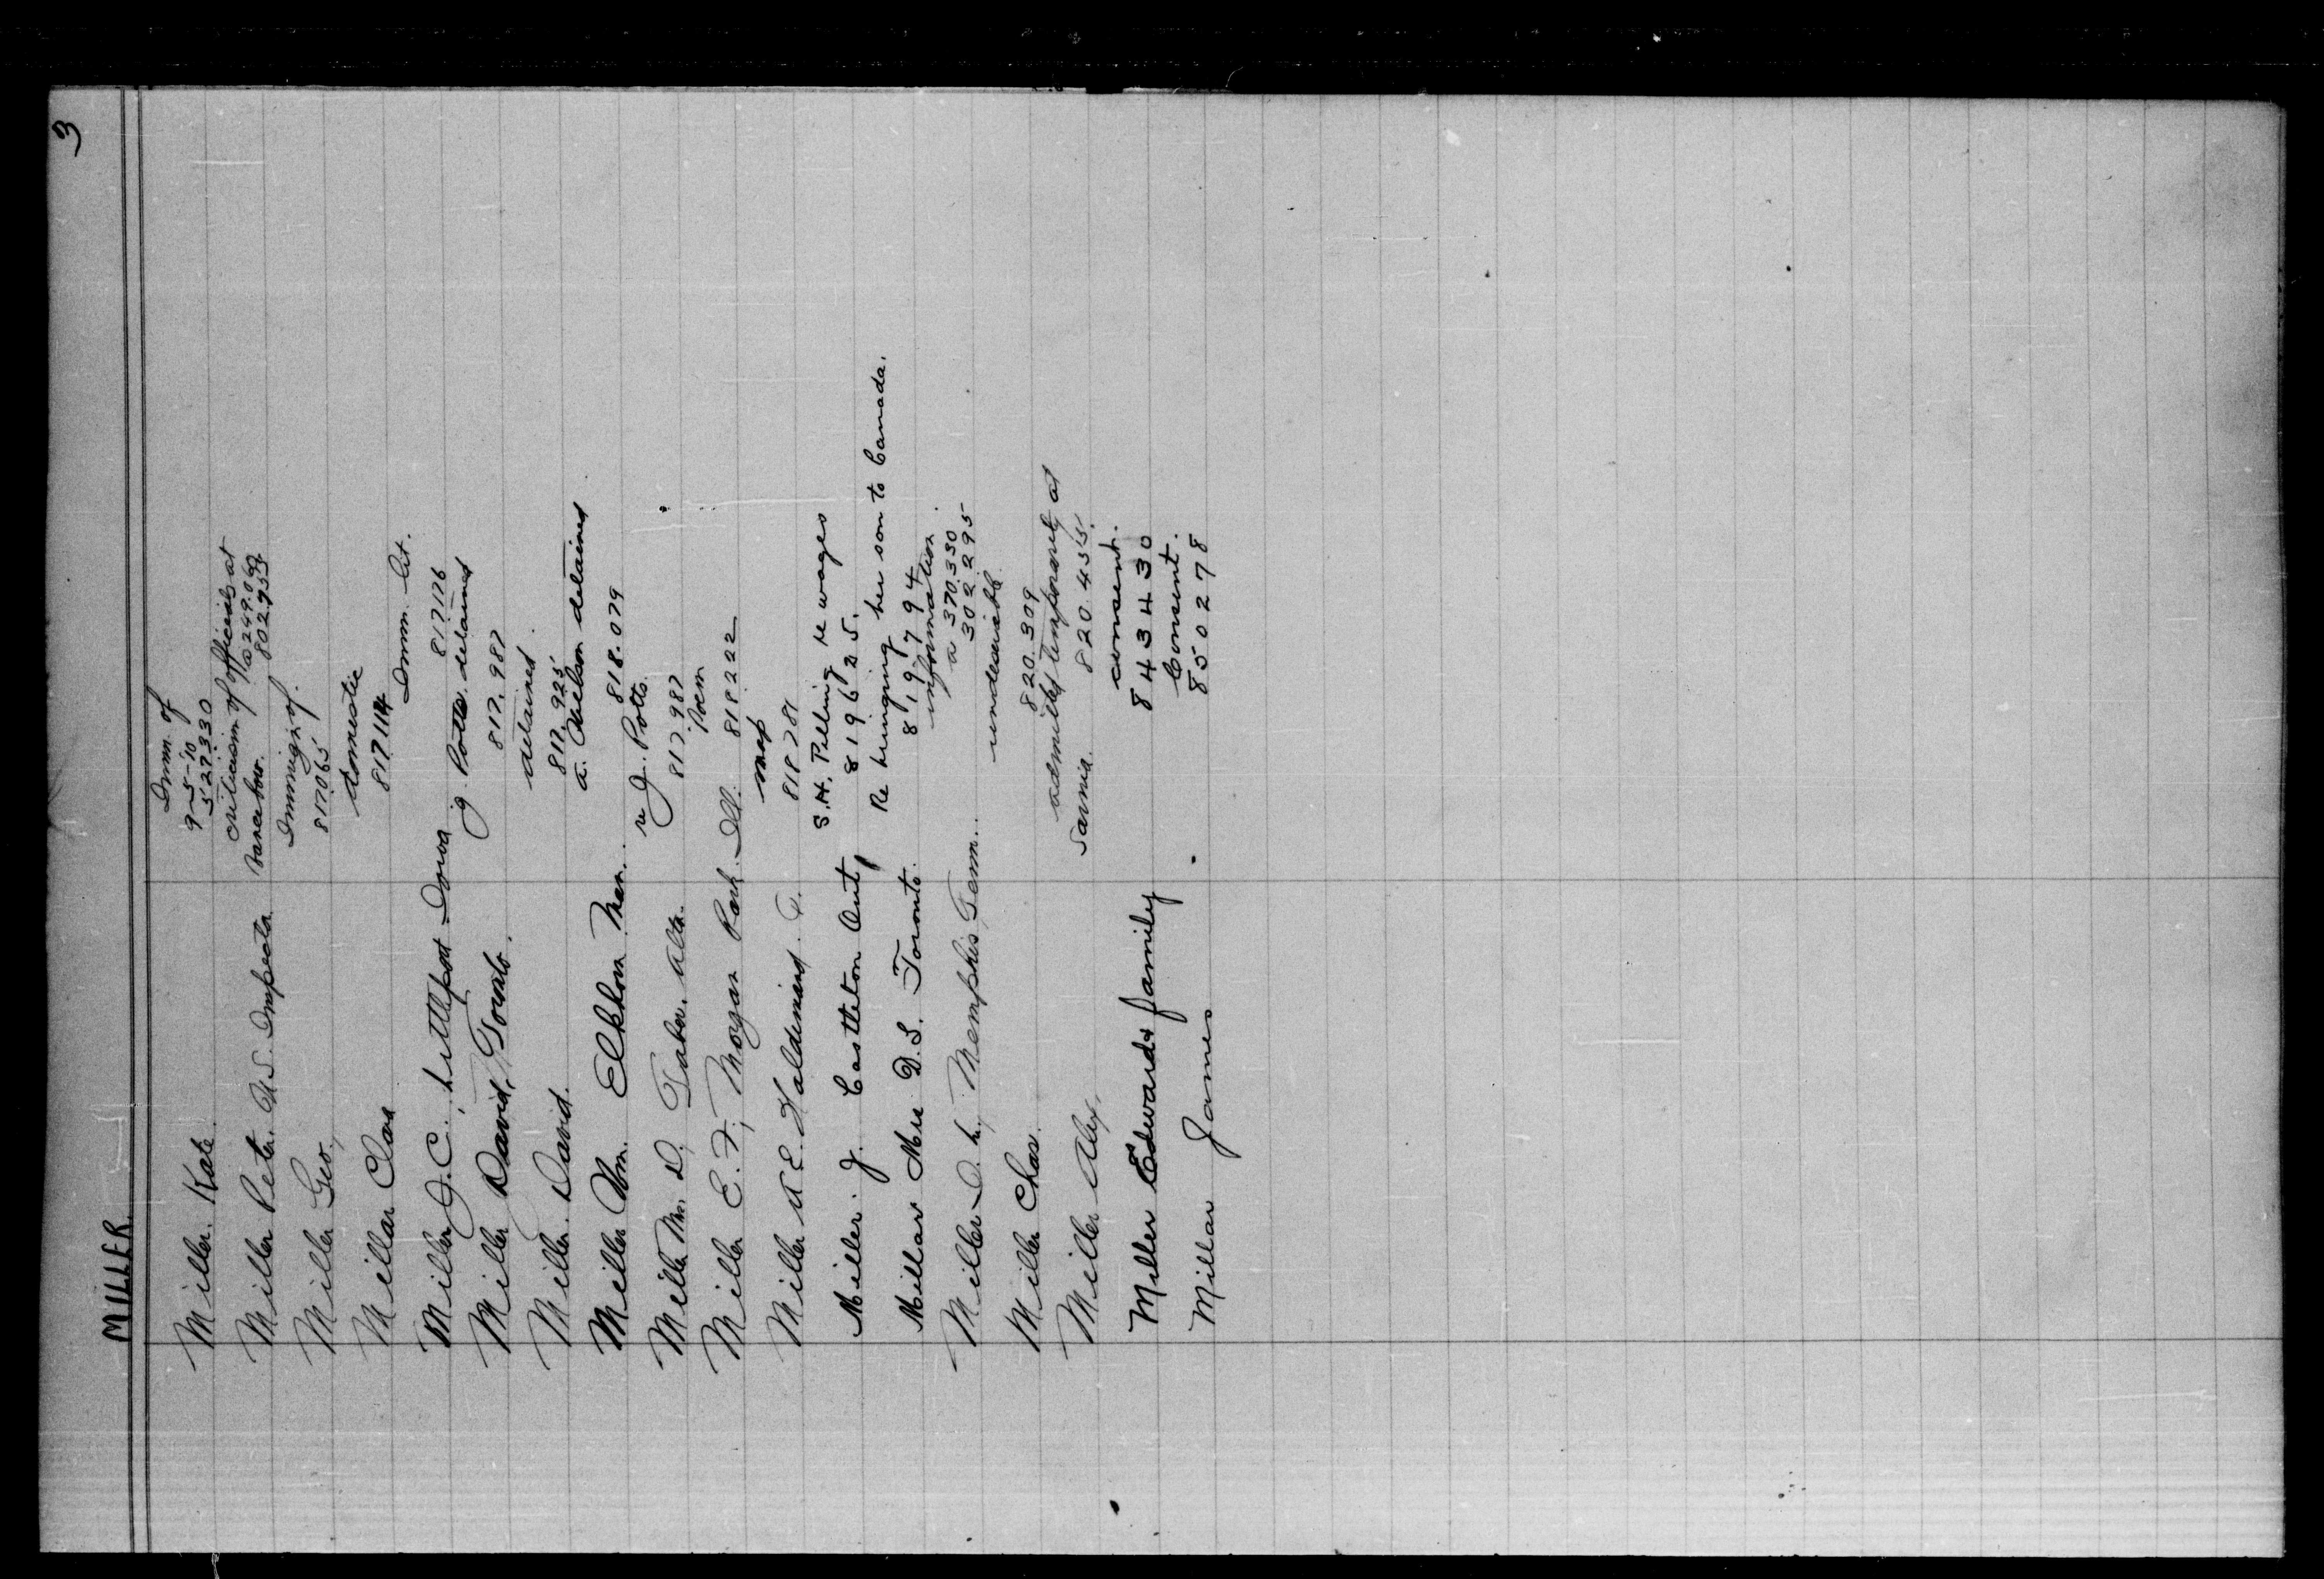 3
MILLER
Miller. Kate. Imm. of
9-5-10
527330
Miller Peter. U.S. Inspector criticism of officials at
Vancebow. a 249.069
802.754
Miller Geo., Immigr. of.
817065
Millar Clara domestic
817114
Miller J. C., Littleport Iowa Imm. lit.
817176
Miller David, Toronto. J. Potts. detained
817.987
Miller. David. detained.
817.925
Miller Wm. Elkhorn Man. a. detained
818.079
Miller Mrs. D. Taber. Alta. re J. Potts.
817.987
Miller E. F., Morgan Park. Ill. Poem
818222
Miller R E. Haldimand. map
818281
Miller. J. Castleton Ont, S.H. Pelling re wages
819625.
Millar Mrs D.S. Toronto. Re bringing her son to Canada.
819794
Miller D. L., Memphis, Tenn. information
a 370.330
302295
Miller Chas. undesirable
820.309
Miller Alex. admitted temporarily at
Sarnia. 820.455.
Miller Edward & family consent.
8434430
Millar James Consent.
850278